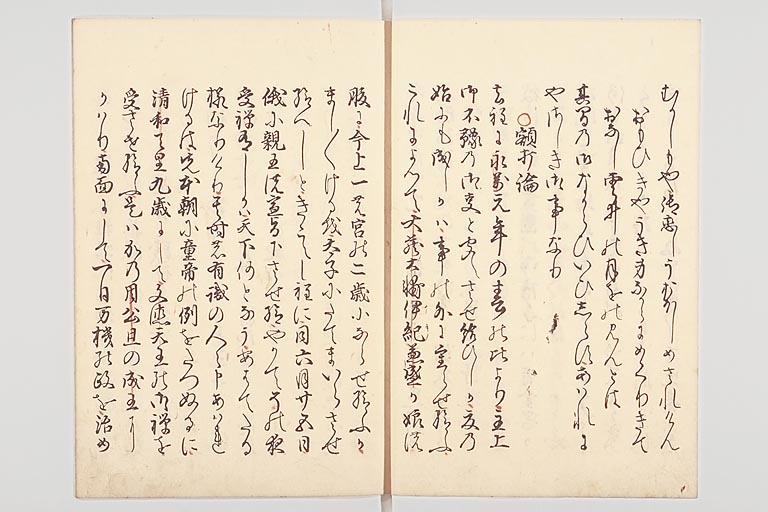 むかしもや御恋しうおほしめされけん
おもひきやうき身なからにめくりきて
おなし雲井の月をみんとは
其間の御なからひいひしらすあはれに
やさしき御事なり
○額打論
去程に永萬元年の春の比より主上
御不豫の御事と聞えさせ給ひしか夏の
始にも成しかは事の外に重らせ給ふ
これによつて大蔵大輔伊紀兼盛か娘の
腹に今上一の宮の二歳にならせ給ふか
まし〱ける 太子にたてまいらさせ
給へしときこえし程に同六月廿五日
俄に親王の宣旨下させ給やかてその夜
受禅ありしかは天下何となうあはてたる
様なりけり其時の有識の人々申あはれ
けるは先本朝に童帝の例をたつぬるに
清和天皇九歳にして文徳天王の御禅を
受させ給ふ是はかの周公旦の成王に
かはり南面にして一日万機の政を治め